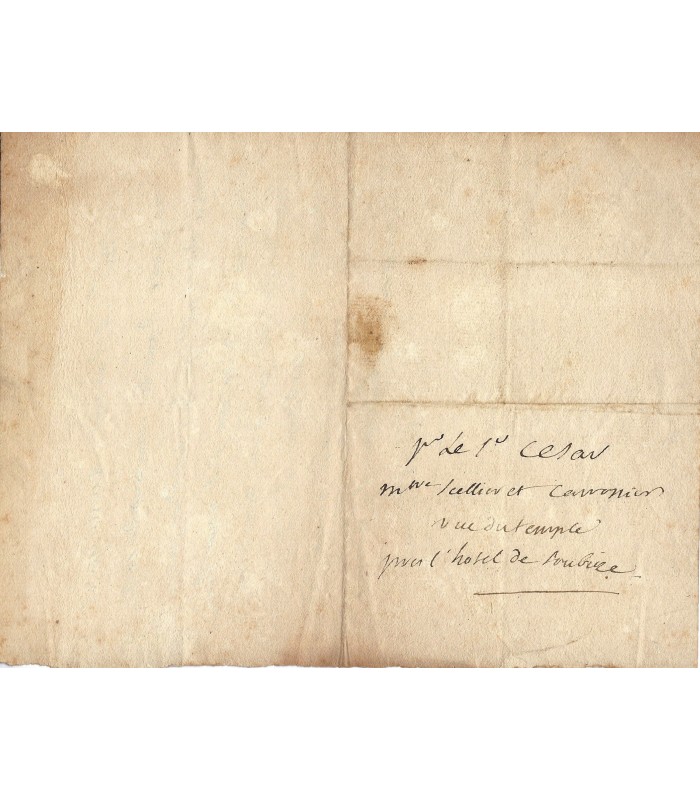 pr Le Sr Cesar
mtre Sellier et Carrossier
rue du temple
pres l'hotel de Soubize